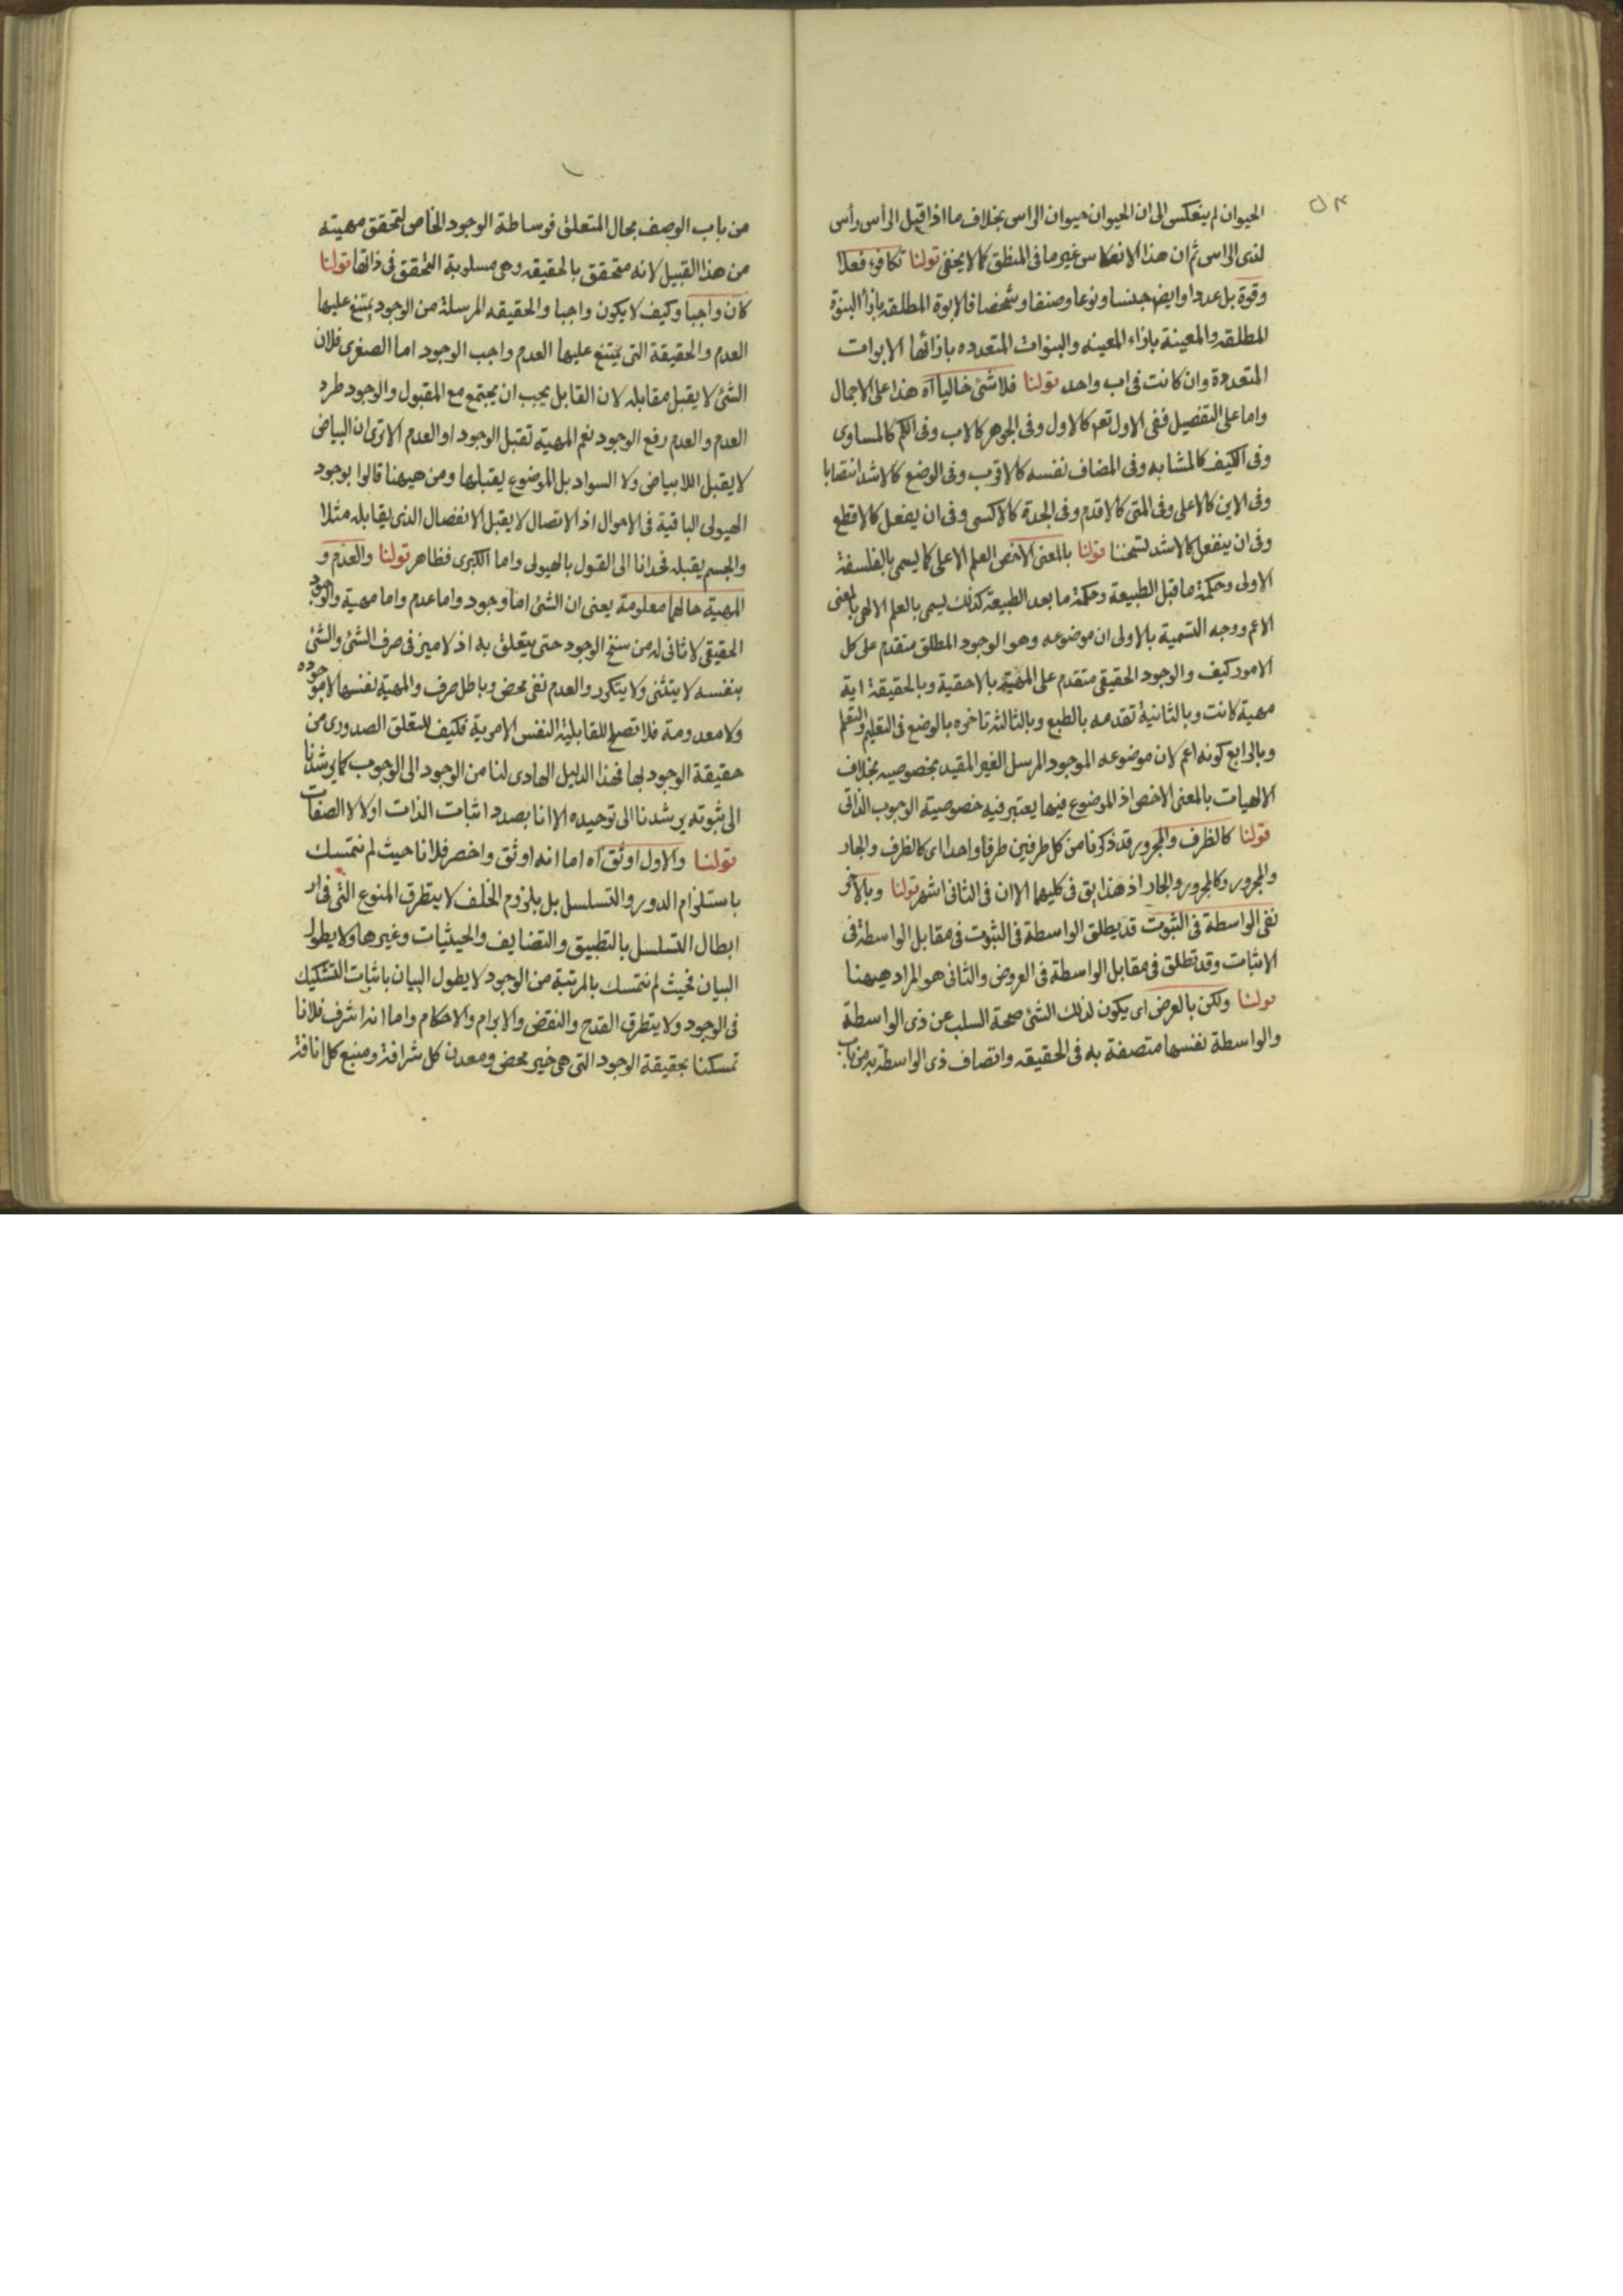 الحيوان لم ينعكس الى ان الحيوان حيوان الراس بخلاف ما اذا قيل الرأس رأس
لذى الراس ثم ان هذا الانعكاس غير ما فى المنطق كما لا يخفى قولنا تكافوء فعلا
وقوة بل عددا وايض جنسا ونوعا وصنفا وشخصا فالابوة المطلقه بازأ البنوة
المطلقه والمعينة بازاء المعينه والبنوات المتعدده بازائها الابوات
المتعددة وان كانت فى اب واحد قولنا فلا شئ خاليا اه هذا على الاجمال
واما على التفصيل ففى الاول تعم كالاول وفى الجوهر كالاب وفى الكم كالمساوى
وفى الكيف كالمشابه وفى المضاف نفسه كالاقرب وفى الوضع كالاشد انتصابا
وفى الاين كالاعلى وفى المتى كالاقدم وفى الجدة كالاكسى وفى ان يفعل كالاقطع
وفى ان ينفعل كالاشد تسخنا قولنا بالمعنى الاخص العلم الاعلى كما يسمى بالفلسفة
الاولى وحكمة ما قبل الطبيعة وحكمة ما بعد الطبيعة كذلك يسمى بالعلم الالهى بالمعنى
الاعم ووجه التسمية بالاولى ان موضوعه وهو الوجود المطلق متقدم على كل
الامور كيف والوجود الحقيقى متقدم على المهية بالاحقية وبالحقيقة اية
مهية كانت وبالثانية تقدمه بالطبع وبالثالثة تاخره بالوضع فى التعليم والتعلم
وبالرابع كونه اعم لان موضوعه الموجود المرسل الغير المقيد بخصوصيه بخلاف
الالهيات بالمعنى الاخص اذ الموضوع فيها يعتبر فيه خصوصية الوجوب الذاتى
قولنا كالظرف والمجرور قد ذكرنا من كل طرفين طرفا واحدا اى كالظرف والجار
والمجرور وكالمجرور والجار اذ هذا يق فى كليهما الا ان فى الثانى اشهر قولنا وبالاخر
نفى الواسطة فى الثبوت قد يطلق الواسطة فى الثبوت فى مقابل الواسطة فى
الاثبات وقد تطلق فى مقابل الواسطة فى العروض والثانى هو المراد هيهنا
قولنا ولكن بالعرض اى يكون لذلك الشئ صحة السلب عن ذى الواسطة
والواسطة نفسها متصفة به فى الحقيقه واتصاف ذى الواسطة به من باب
من باب الوصف بحال المتعلق فوساطة الوجود الخاص لتحقق مهيته
من هذا القبيل لانه متحقق بالحقيقه وهى مسلوبة التحقق فى ذاتها قولنا
كان واجبا وكيف لا يكون واجبا والحقيقه المرسلة من الوجود يمتنع عليها
العدم والحقيقة التى يمتنع عليها العدم واجب الوجود اما الصغرى فلان
الشئ لا يقبل مقابله لان القابل يجب ان يجتمع مع المقبول والوجود طرد
العدم والعدم رفع الوجود نعم المهية تقبل الوجود او العدم الا ترى ان البياض
لا يقبل اللابياض ولا السواد بل الموضوع يقبلها ومن هيهنا قالوا بوجود
الهيولى الباقية فى الاحوال اذ الاتصال لا يقبل الانفصال الذى يقابله مثلا
والجسم يقبله فحدانا الى القول بالهيولى واما الكبرى فظاهر قولنا والعدم و
المهية حالهما معلومة يعنى ان الشئ اما وجود واما عدم واما مهية والوجود
الحقيقى لا ثانى له من سنخ الوجود حتى يتعلق به اذ لا ميز فى صرف الشئ والشئ
بنفسه لا يتثنى ولا يتكرر والعدم نفى محض وباطل صرف والمهية نفسها لا موجوده
ولا معدومة فلا تصلح للقابلية النفس الامرية فكيف للتعلق الصدورى من
حقيقة الوجود بها فهذا الدليل الهادى لنا من الوجود الى الوجوب كما يرشدنا
الى ثبوته يرشدنا الى توحيده الا انا بصدد اثبات الذات اولا لا الصفات
قولنا والاول اوثق اه اما انه اوثق واخصر فلانا حيث لم نتمسك
باستلزام الدور والتسلسل بل بلزوم الخلف لا يتطرق المنوع التى فى ار
ابطال التسلسل بالتطبيق والتضايف والحيثيات وغيرها ولا يطول
البيان فحيث لم نتمسك بالمرتبة من الوجود لا يطول البيان باثبات التشكيك
فى الوجود ولا يتطرق القدح والنقض والابرام والاحكام واما انه اشرف فلانا
تمسكنا بحقيقة الوجود التى هى خير محض ومعدن كل شرافة ومنبع كل انافة